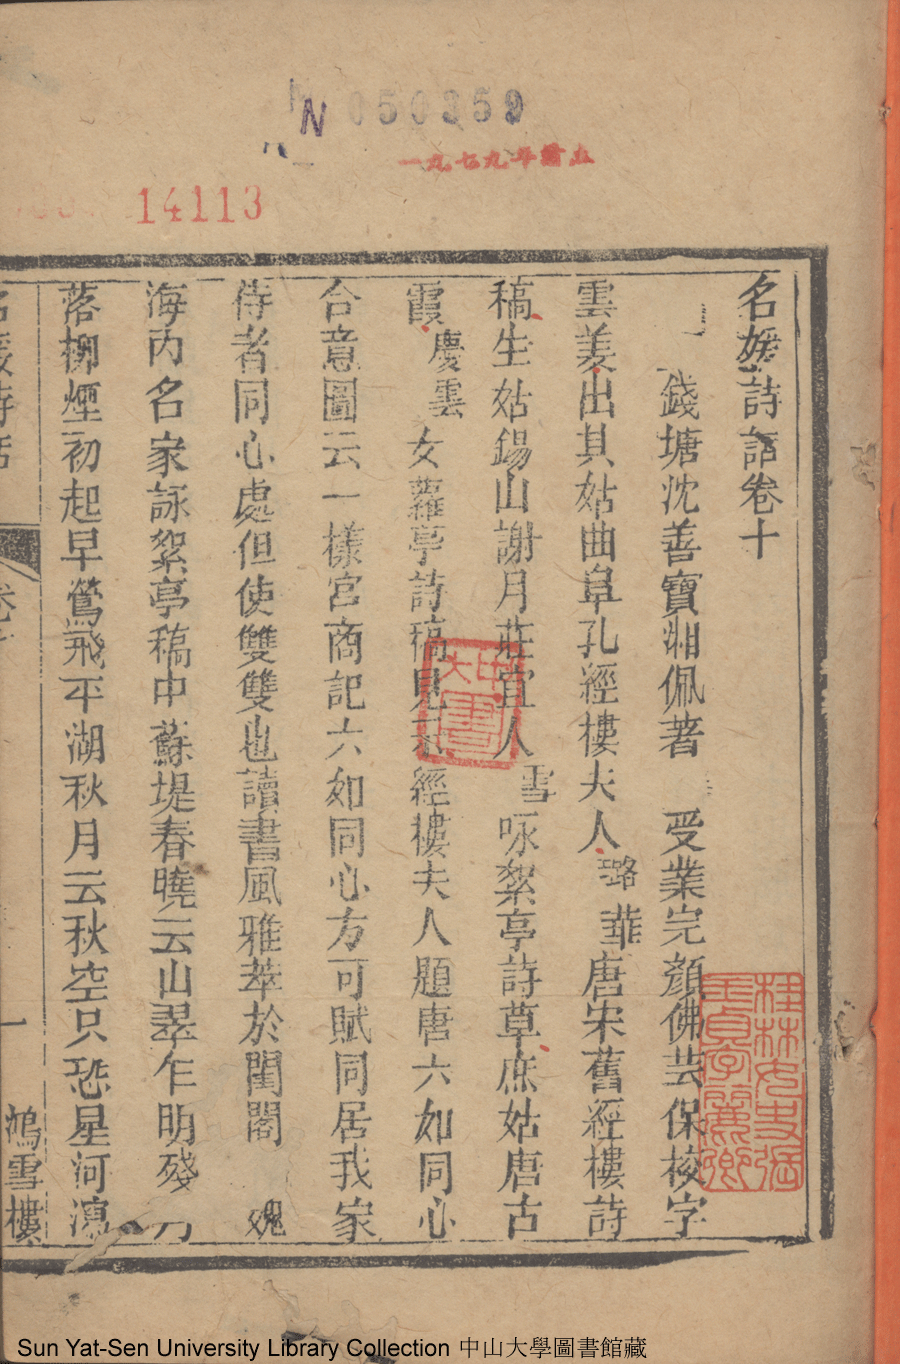 050359
一九七九年
14113
名媛詩話卷十
錢塘沈善寶湘佩著 受業完顏佛芸保校字
雲姜出其姑曲阜孔經樓夫人璐華唐宋舊經樓詩
稿生姑錫山謝月莊宜人雪咏絮亭詩草庶姑唐古
霞慶雲女蘿亭詩稿見示經樓夫人題唐六如同心
合意圖云一樣宮商記六如同心方可賦同居我家
侍者同心處但使雙雙也讀書風雅萃於閨閤 媿
海內名家詠絮亭稿中蘇堤春曉云山翠乍明殘月
落柳煙初起早鶯飛平湖秋月云秋空只恐星河濕
名媛詩話
卷十
一
鴻雪樓
中大圖書
Sun Yat-Sen University Library Collection 中山大學圖書館藏